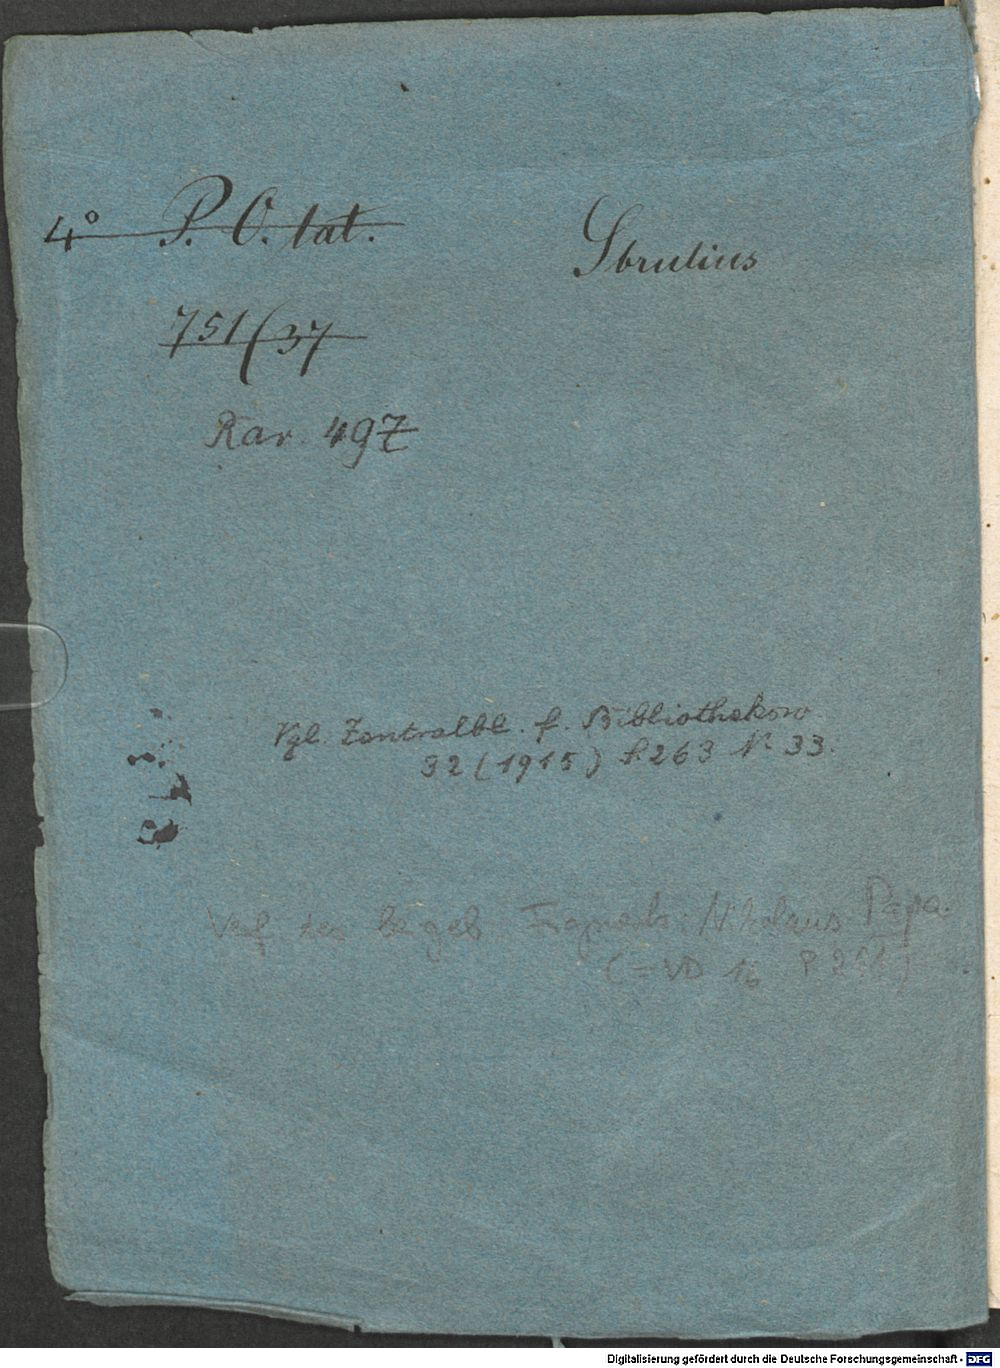 4° P. O. lat.
Sbrulius
751(37
Rar. 497
Vgl. Zentralbl. f. Bibliotheksw
32 (1915) S 263 Nr 33.
Verf des beigeb Fragments: Nikolaus Papa.
(= VD 16 P
Digitalisierung gefördert durch die Deutsche Forschungsgemeinschaft - DFG